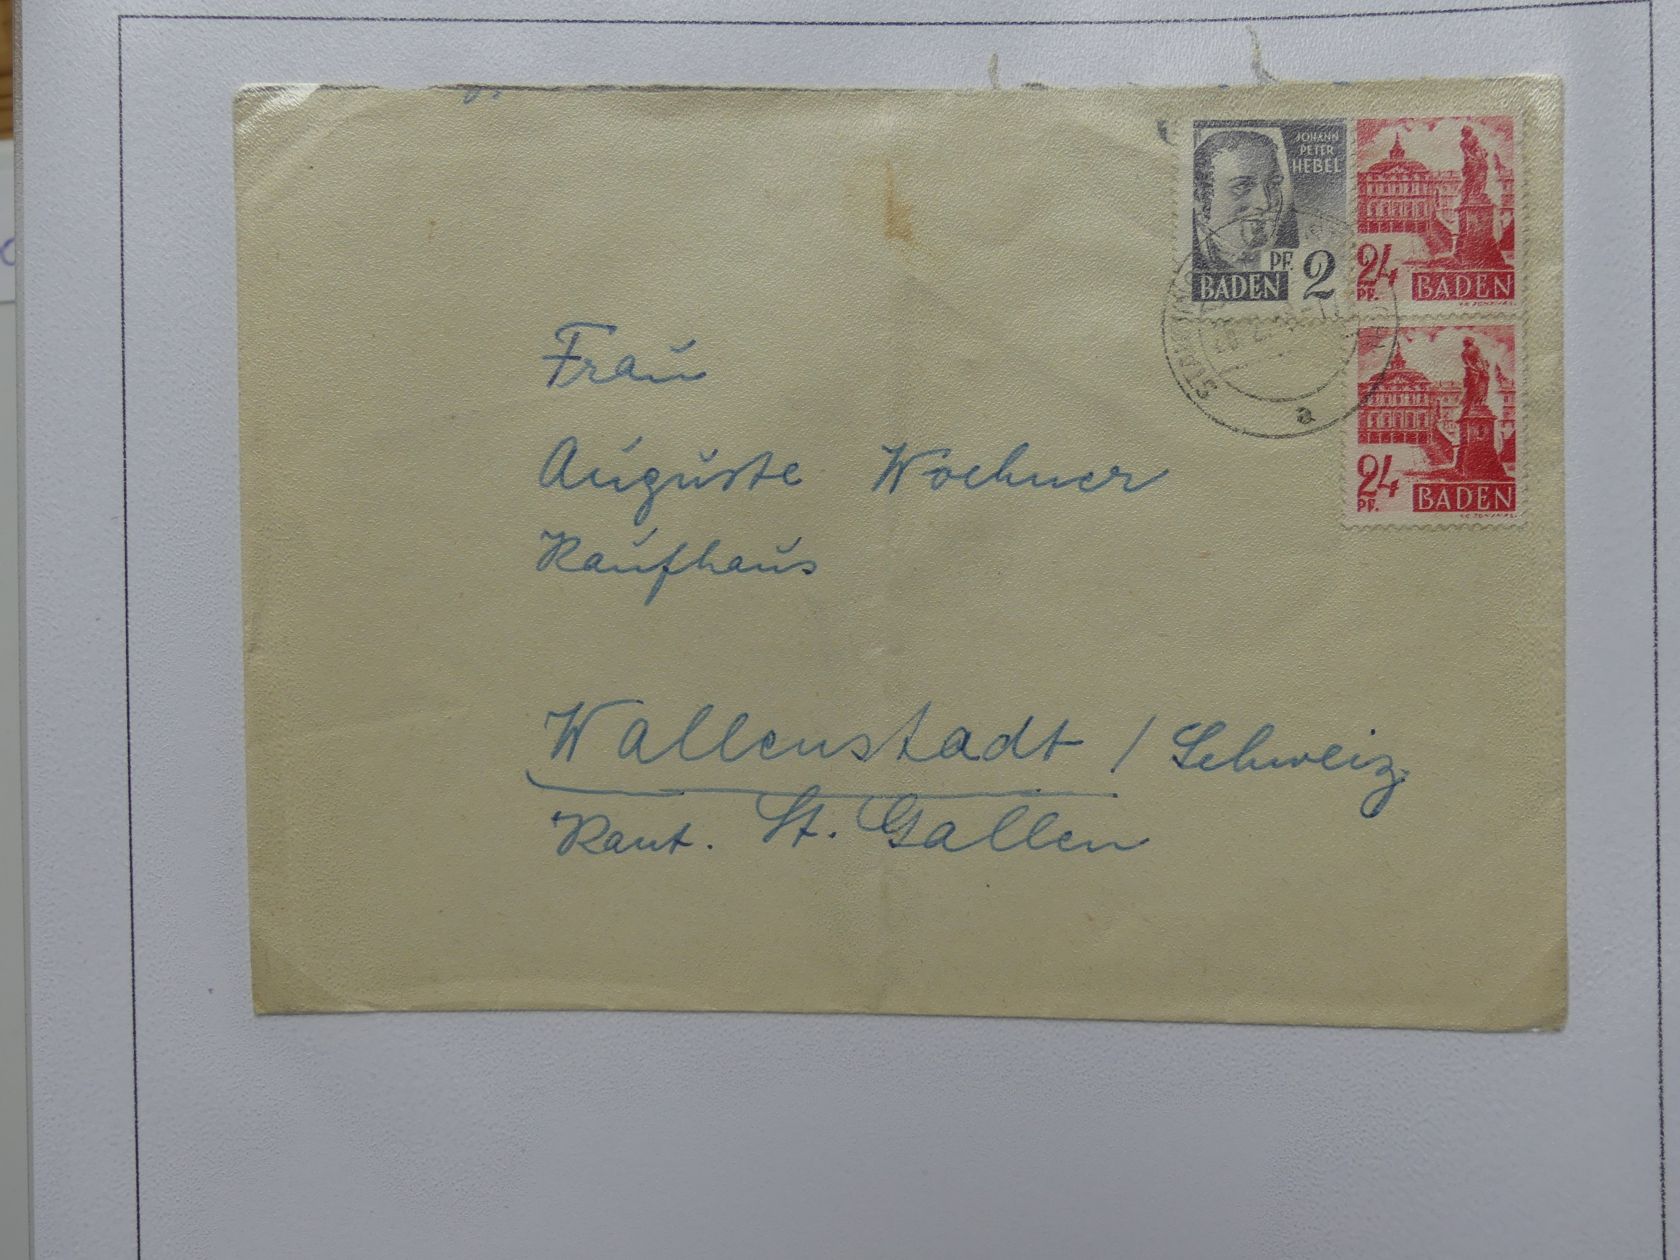 JOHANN
PETER
HEBEL
PF. 2
BADEN
24
PF.
BADEN
24
PF.
BADEN
a
Frau
Auguste Woehner
Kaufhaus
Wallenstadt / Schweiz
Kant. St. Gallen